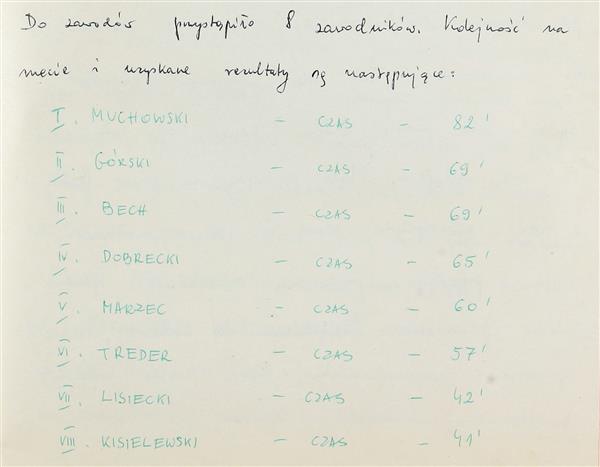 Do zawodów przystąpiło 8 zawodników. Kolejność na
mecie i uzyskane rezultaty są następujące:
I. MUCHOWSKI - CZAS - 82'
II. GÓRSKI - CZAS - 69'
III. BECH - CZAS - 69'
IV. DOBRECKI - CZAS - 65'
V. MARZEC - CZAS - 60'
VI. TREDER - CZAS - 57'
VII. LISIECKI - CZAS - 42'
VIII. KISIELEWSKI - CZAS - 41'